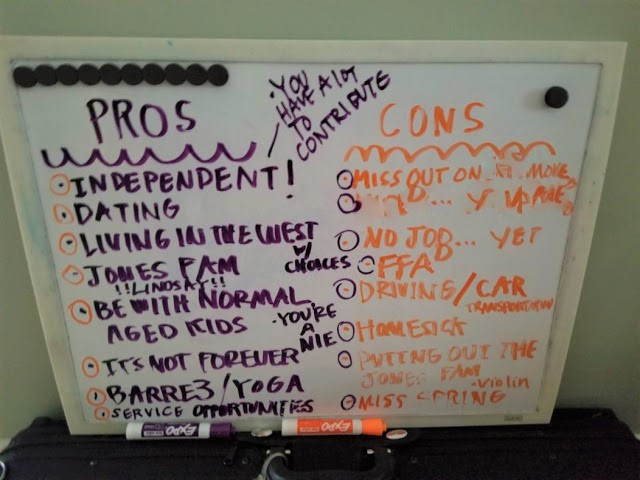 PROS
INDEPENDENT!
DATING
LIVING IN THE WEST
W/
CHOICES
JONES FAM
!!LINDSAY!!
BE WITH NORMAL
AGED KIDS
IT'S NOT FOREVER
BARRE3/YOGA
SERVICE OPPORTUNITIES
·YOU
HAVE A LOT
TO
CONTRIBUTE
·YOU'RE
A
NIE
CONS
MISS OUT ON
NO JOB... YET
FFA
DRIVING/CAR
TRANSPORTATION
HOMESICK
PUTTING OUT THE
JONES FAM
-violin
MISS SPRING
EXPO
EXPO